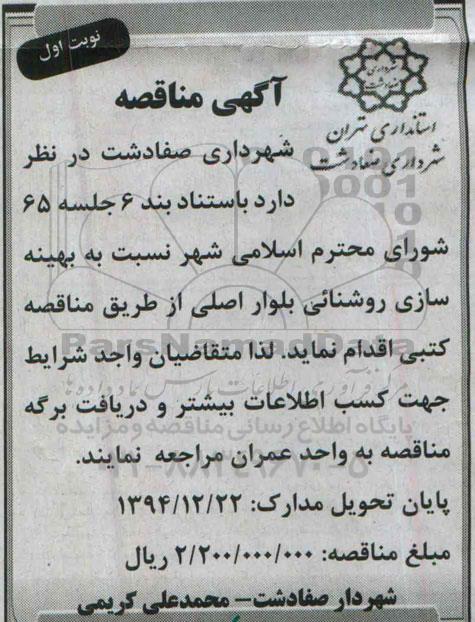 نوبت اول
شهرداری
صفادشت
استانداری تهران
شهرداری صفادشت
آگهی مناقصه
شهرداری صفادشت در نظر
دارد باستناد بند ۶ جلسه ۶۵
شورای محترم اسلامی شهر نسبت به بهینه
سازی روشنائی بلوار اصلی از طریق مناقصه
کتبی اقدام نماید. لذا متقاضیان واجد شرایط
جهت کسب اطلاعات بیشتر و دریافت برگه
مناقصه به واحد عمران مراجعه نمایند.
پایان تحویل مدارک: ۱۳۹۴/۱۲/۲۲
مبلغ مناقصه: ۲/۲۰۰/۰۰۰/۰۰۰ ریال
شهردار صفادشت – محمدعلی کریمی
ParsNamadData
مرکز فرآوری اطلاعات پارس نماد داده ها
پایگاه اطلاع رسانی مناقصه و مزایده
۰۲۱-۸۸۳۴۹۶۷۰-۵